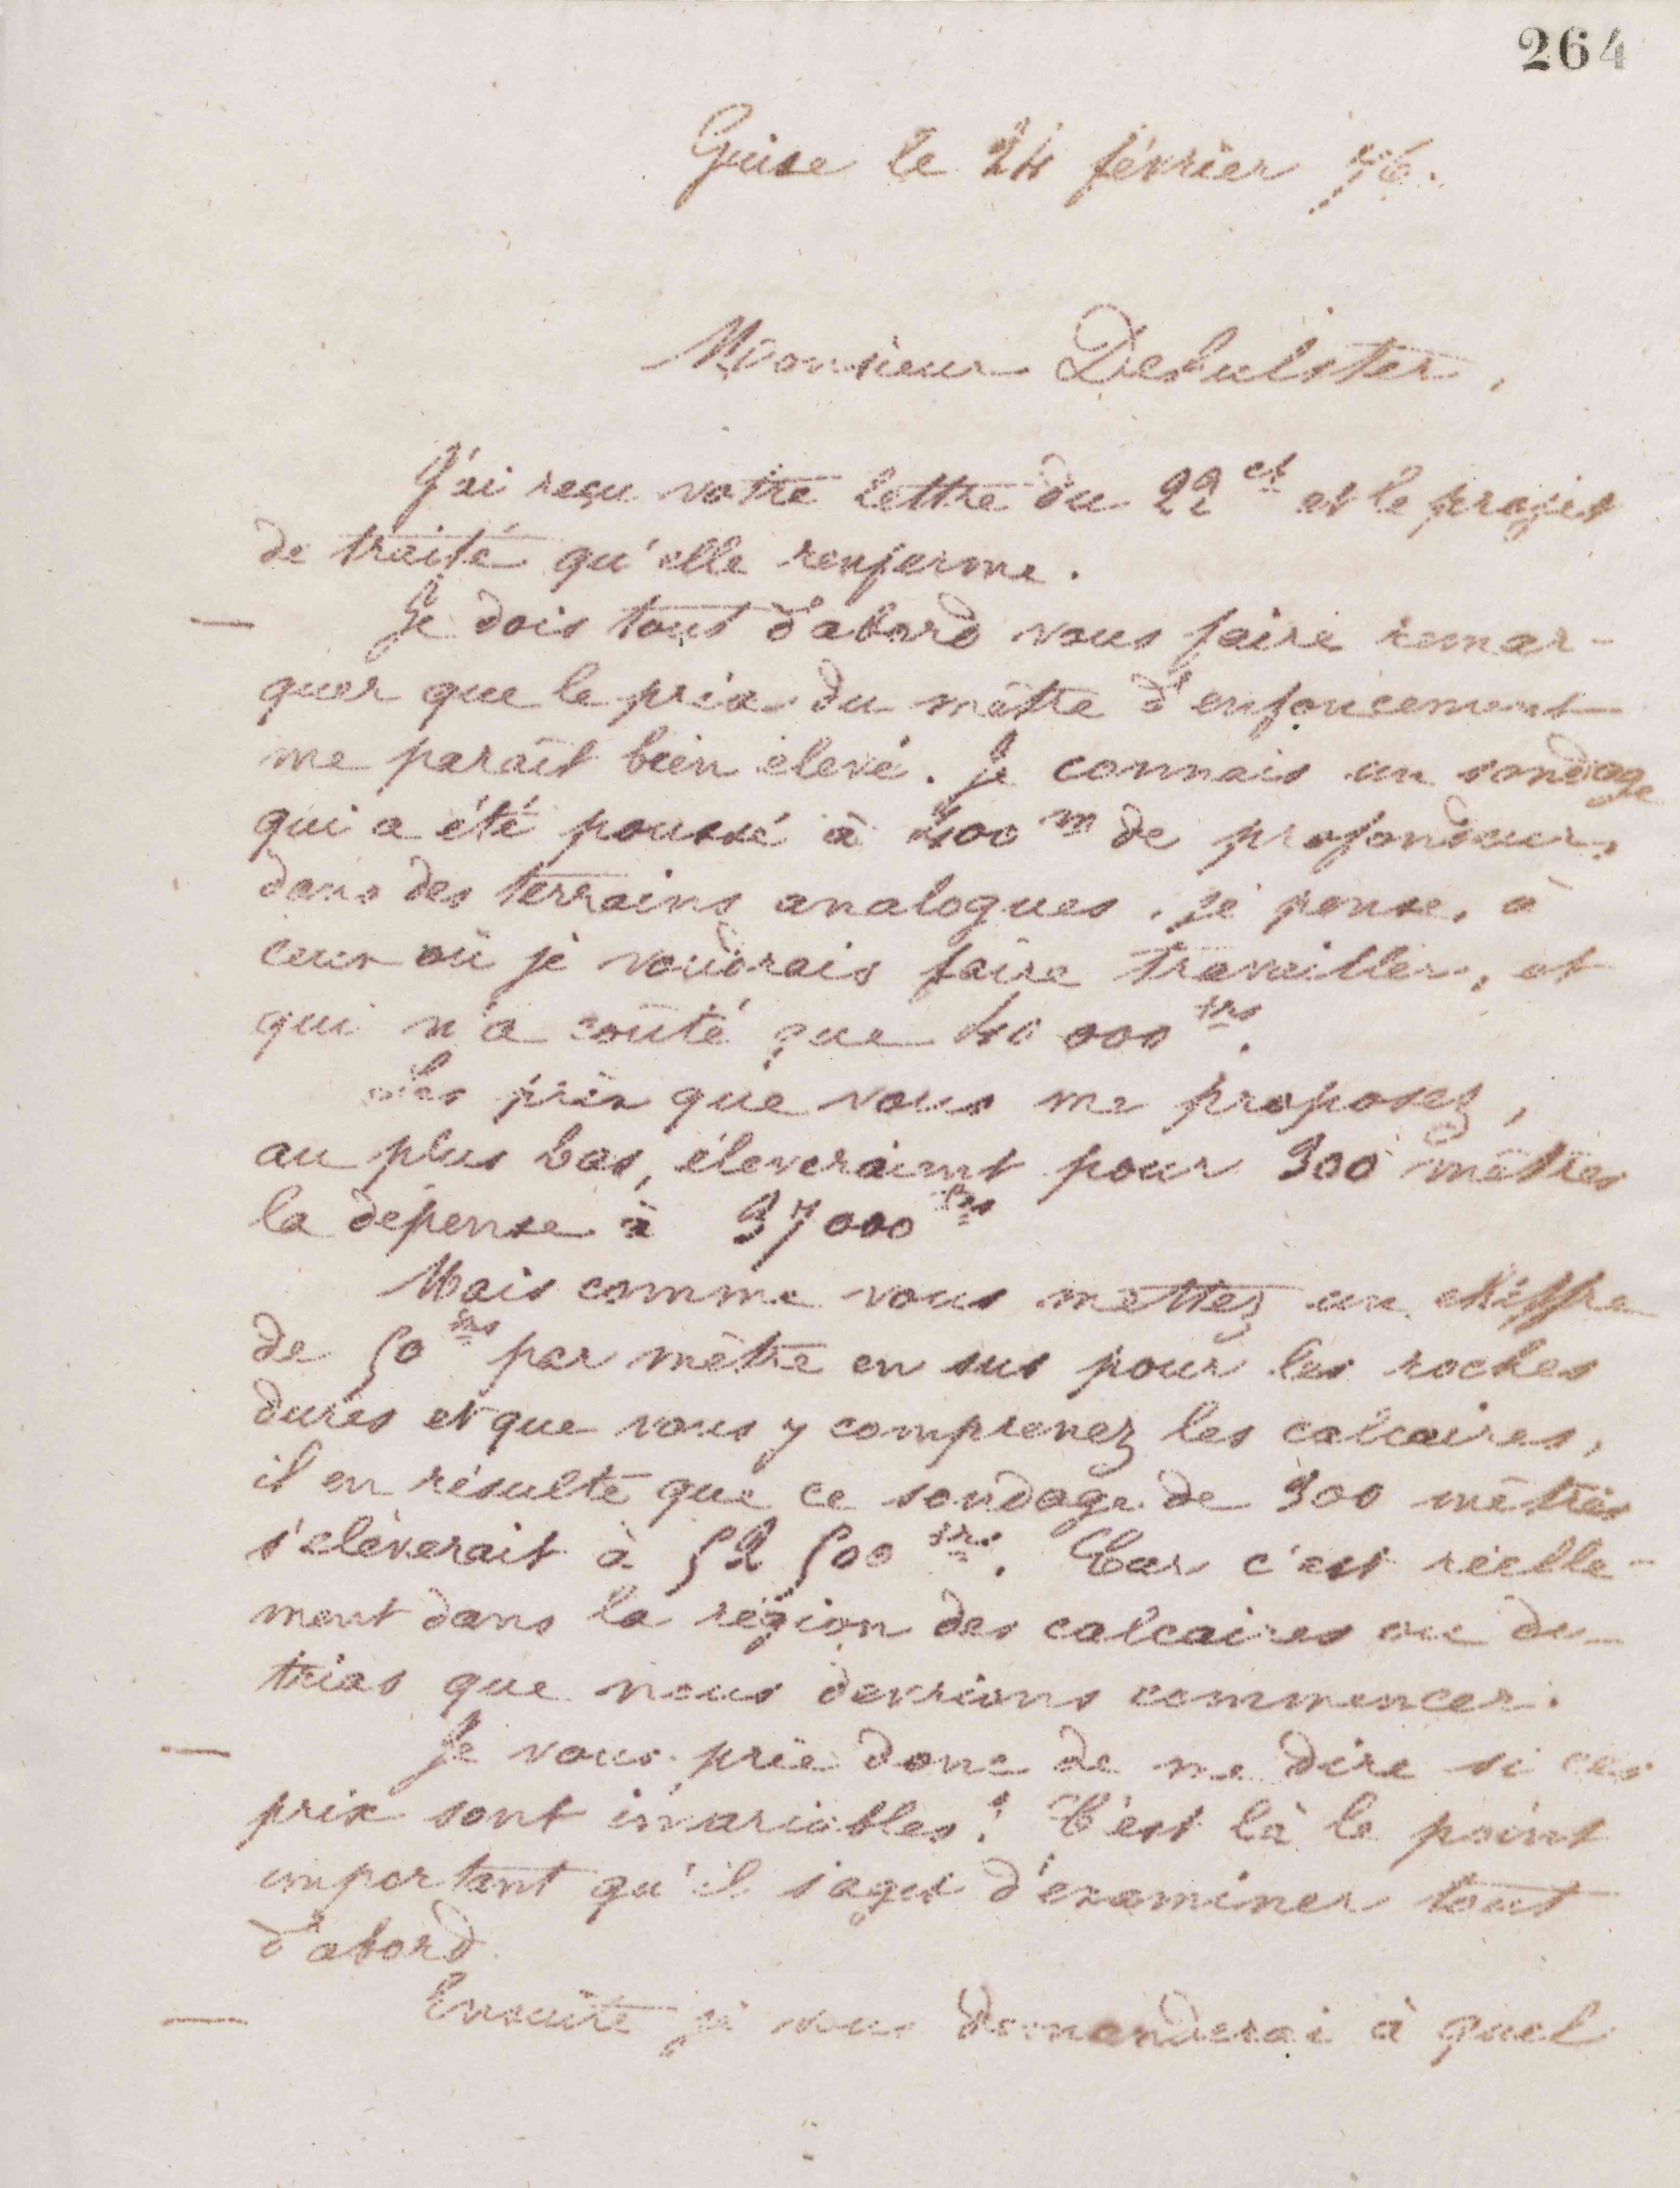 264
Guise le 24 février 76.
Monsieur Dehulster,
J'ai reçu votre lettre du 22 ct et le projet
de traité qu'elle renferme.
— Je dois tout d'abord vous faire remar-
quer que le prix du mètre d'enfoncement
me paraît bien élevé. Je connais un sondage
qui a été poussé à 400 m de profondeur,
dans des terrains analogues, je pense, à
ceux où je voudrais faire travailler, et
qui n'a coûté que 40 000 frs.
Les prix que vous me proposez,
au plus bas, éleveraient pour 300 mètres
la dépense à 37 000 frs
Mais comme vous mettez un chiffre
de 50 frs par mètre en sus pour les roches
dures et que vous y comprenez les calcaires,
il en résulte que ce sondage de 300 mètres
s'élèverait à 52 500 frs. Car c'est réelle-
ment dans la région des calcaires ou du
trias que nous devrions commencer.
— Je vous prie donc de me dire si ces
prix sont invariables! C'est là le point
important qu'il s'agit d'examiner tout
d'abord.
— Ensuite je vous demanderai à quel